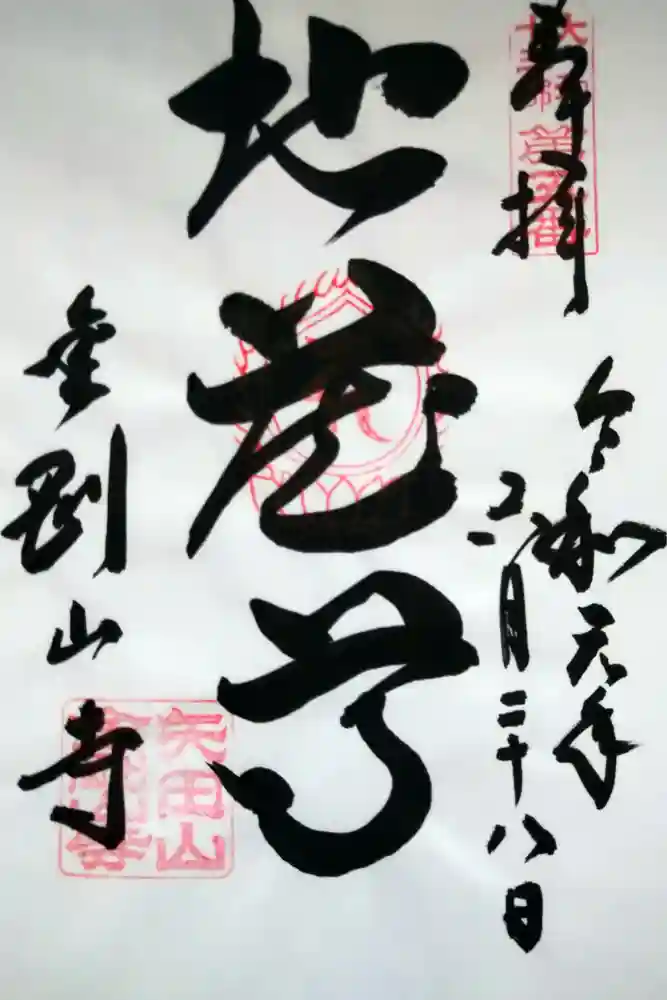 奉拝
第五番
令和元年
五月二十八日
地蔵尊
金剛山寺
矢田山
金剛山寺